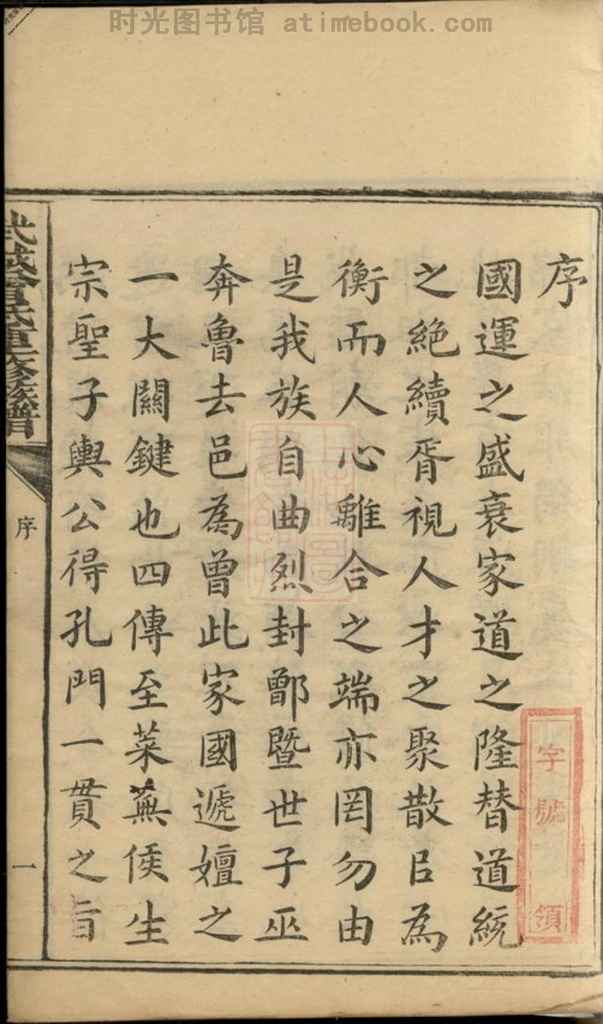 时光图书馆 atimebook.com
序
國運之盛衰家道之隆替道統
之絶續胥視人才之聚散㠯為
衡而人心離合之端亦罔勿由
是我族自曲烈封鄫曁世子巫
奔魯去邑為曾此家國遞嬗之
一大關鍵也四傳至萊蕪侯生
宗聖子輿公得孔門一貫之旨
武城曾氏重修族譜
序
一
字號
領